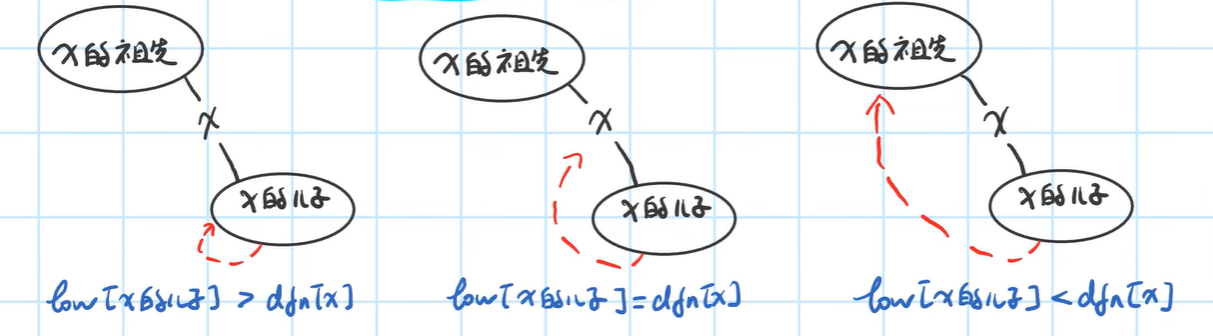 x的祖先
x
x的儿子
low[x的儿子] > dfn[x]
x的祖先
x
x的儿子
low[x的儿子]=dfn[x]
x的祖先
x
x的儿子
low[x的儿子]<dfn[x]